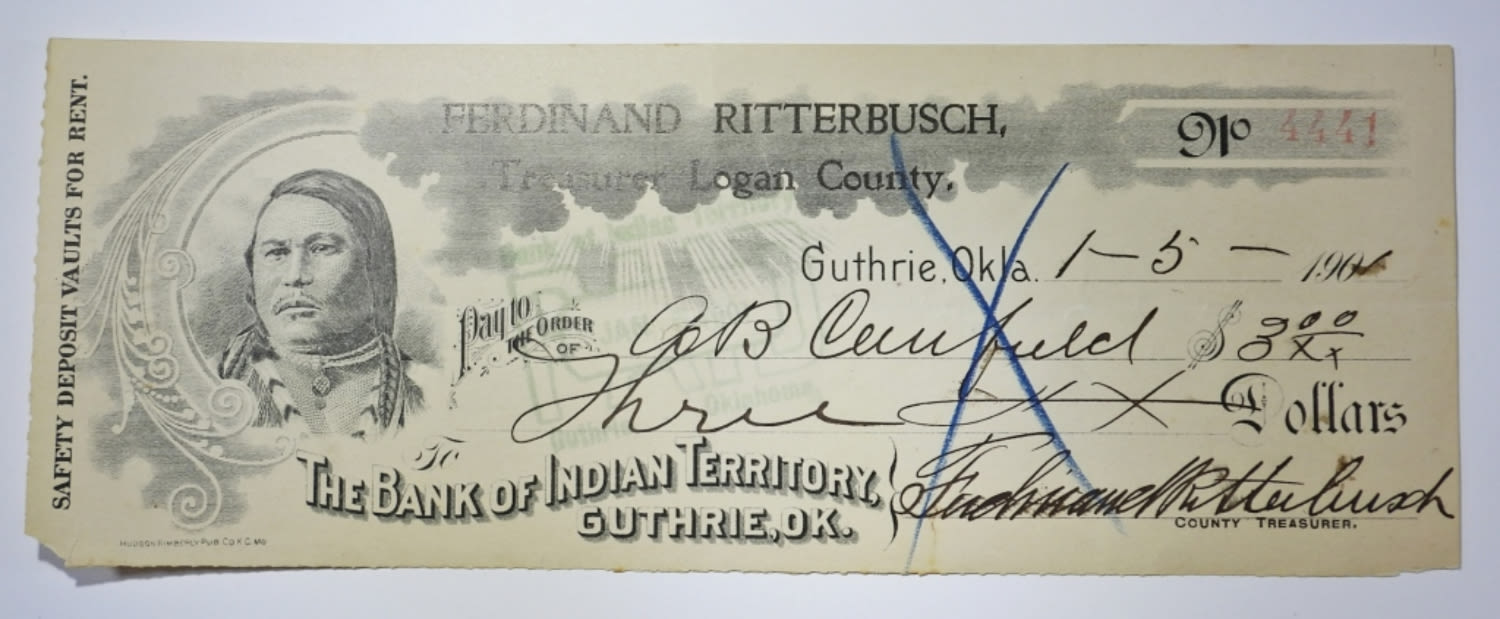 SAFETY DEPOSIT VAULTS FOR RENT.
FERDINAND RITTERBUSCH,
No 4441
Treasurer Logan County,
Guthrie, Okla. 1-5- 1901
Pay to THE ORDER OF C B Canfield $3 00/xx
Three x Dollars
To
THE BANK OF INDIAN TERRITORY,
GUTHRIE, OK.
Ferdinand Ritterbusch
COUNTY TREASURER.
HUDSON-KIMBERLY PUB. CO K.C. MO
Bank of Indian Territory
PAID
Oklahoma
Guthrie